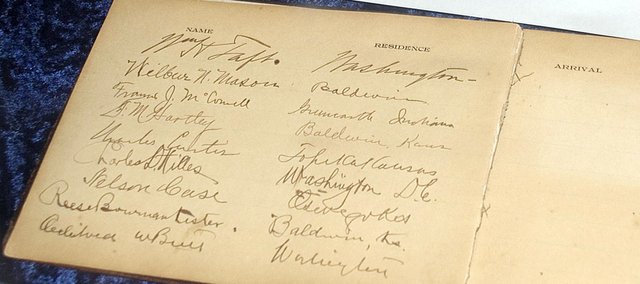 NAME RESIDENCE ARRIVAL
Wm H Taft. Washington
Wilbur N. Mason Baldwin
Francis J. McConnell Greencastle Indiana
S. M. Hartley Baldwin, Kans
Charles Curtis Topeka Kansas
Charles D. Hilles Washington D.C.
Nelson Case Oswego Ks
Reese Bowman Kester. Baldwin, Ks.
Archibald W Butt Washington